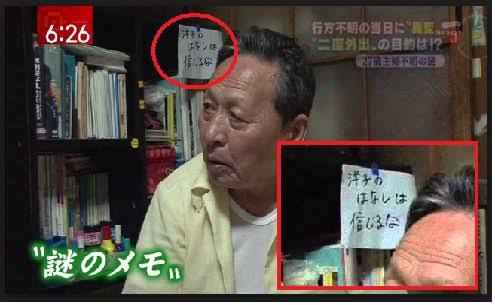 6:26
行方不明の当日に"異変"
"二度外出"の目的は!?
27歳主婦不明の謎
洋子の
はなしは
信じるな
"謎のメモ"
洋子の
はなしは
信じるな